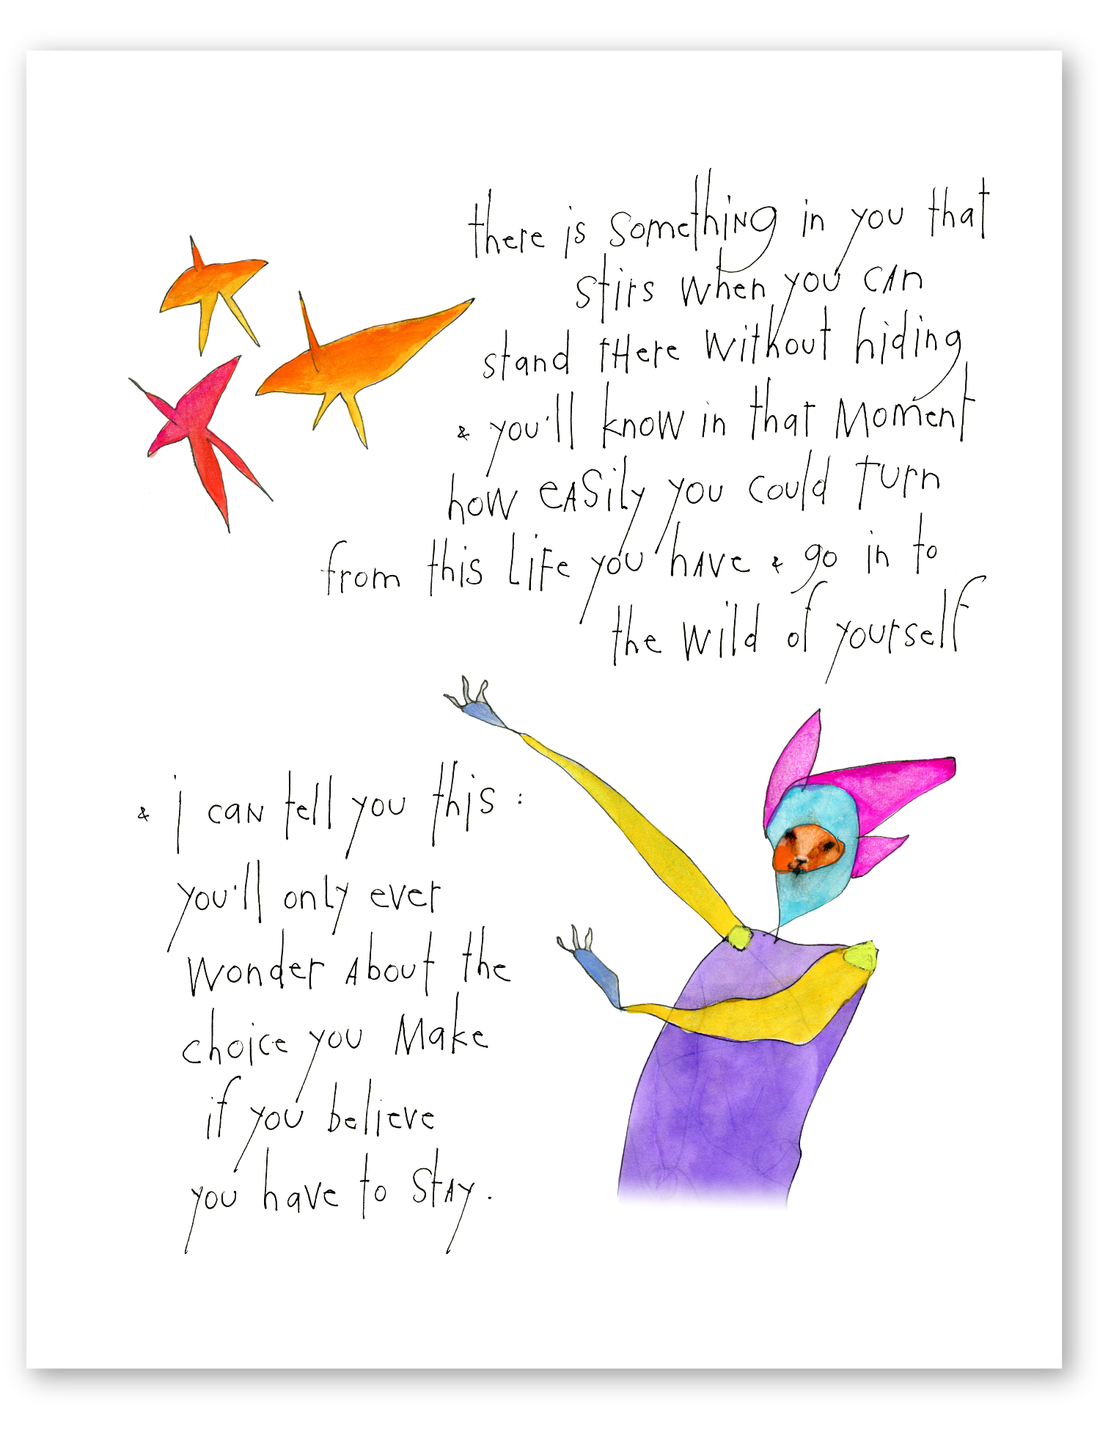 there is something in you that
stirs when you can
stand there without hiding
& you'll know in that moment
how easily you could turn
from this life you have & go in to
the wild of yourself
& i can tell you this :
you'll only ever
wonder about the
choice you make
if you believe
you have to stay.